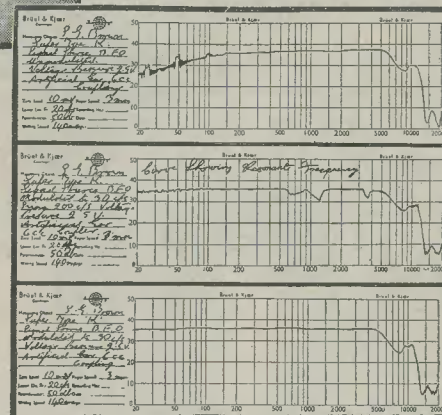 Brüel & Kjær
Measuring Object S. G. Brown
Type K.
Signal Source B.F.O
Unmodulated.
Voltage Pressure 2.5V
Artificial Ear 6cc
Coupling
Zero Level 10 mV Paper Speed 3 mm
Lower Lim. Fr. 20 c/s
Potentiometer 50 db
Writing Speed 140
Brüel & Kjær
Brüel & Kjær
50
40
30
20
10
0
20 50 100 200 500 1000 2000 5000 10000
Brüel & Kjær
Measuring Object S. G. Brown
Type K.
Signal Source B.F.O
Modulated 30 c/s
200 c/s Voltage
Pressure 2.5 V.
Artificial Ear
6cc Coupler
Zero Level 10 mV Paper Speed 3 mm
Lower Lim. Fr. 20 c/s
Potentiometer 50 db
Writing Speed 140
Brüel & Kjær
Brüel & Kjær
Curve Showing Resonant Frequency
50
40
30
20
10
0
20 50 100 200 500 1000 2000 5000 10000
Brüel & Kjær
Measuring Object S. G. Brown
Type K.
Signal Source B.F.O
Modulated 30 c/s
Voltage Pressure 2.5V.
Artificial Ear 6cc
Coupling
Zero Level 10 mV Paper Speed 3 mm
Lower Lim. Fr. 20 c/s
Potentiometer 50 db
Writing Speed 140
Brüel & Kjær
Brüel & Kjær
50
40
30
20
10
0
20 50 100 200 500 1000 2000 5000 10000